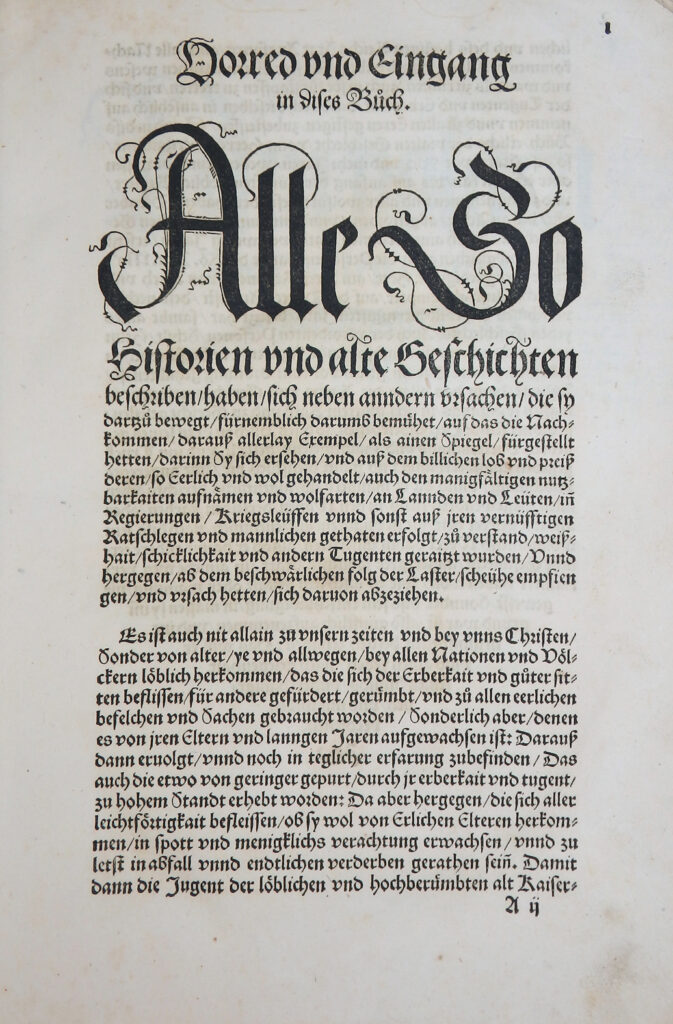 1
Vorred vnd Eingang
in dises Bůch.
Alle So
Historien vnd alte Geschichten
beschriben/haben/sich neben anndern vrsachen/die sy
dartzů bewegt/fürnemblich darumb bemühet/auf das die Nach-
kommen/darauß allerlay Exempel/als ainen Spiegel/fürgestellt
hetten/darinn Sy sich ersehen/vnd auß dem billichen lob vnd preiß
deren/so Eerlich vnd wol gehandelt/auch den manigfältigen nutz-
barkaiten aufnämen vnd wolfarten/an Lannden vnd Leüten/in̄
Regierungen/Kriegsleüffen vnnd sonst auß jren vernüfftigen
Ratschlegen vnd mannlichen gethaten erfolgt/zů verstand/weiß-
hait/schicklichkait vnd andern Tugenten geraitzt wurden/Vnnd
hergegen/ab dem beschwärlichen folg der Laster/scheühe empfien
gen/vnd vrsach hetten/sich daruon abzeziehen.
Es ist auch nit allain zu vnsern zeiten vnd bey vnns Christen/
Sonder von alter/ye vnd allwegen/bey allen Nationen vnd Völ-
ckern löblich herkommen/das die sich der Erberkait vnd gůter sit-
ten beflissen/für andere gefürdert/gerümbt/vnd zů allen eerlichen
befelchen vnd Sachen gebraucht worden/Sonderlich aber/denen
es von jren Eltern vnd lanngen Jaren aufgewachsen ist: Darauß
dann eruolgt/vnnd noch in teglicher erfarung zubefinden/Das
auch die etwo von geringer gepurt/durch jr erberkait vnd tugent/
zu hohem Standt erhebt worden: Da aber hergegen/die sich aller
leichtförtigkait befleissen/ob sy wol von Erlichen Elteren herkom-
men/in spott vnd menigklichs verachtung erwachsen/vnnd zu
letst in abfall vnnd endtlichen verderben gerathen sein̄. Damit
dann die Jugent der löblichen vnd hochberümbten alt Kaiser-
A ij